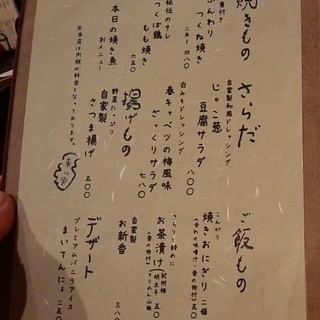 ご飯もの
こんがり
焼きおにぎり 二個
お茶漬け
三八〇
デザート
プレミアムバニラアイス
まいてんにぇ 二五〇
さらだ
自家製和風ドレッシング
じゃこ葱
豆腐サラダ
八〇〇
白みそドレッシング
春キャベツの梅風味
ざっくりサラダ
七八〇
揚げもの
野菜たっぷり
自家製
さつま揚げ
五〇〇
自家製
お新香
三八〇
焼きもの
ふんわり
つくね焼き
秘伝のタレ
つくば鶏
もも焼き
六五〇
本日の焼き魚
別メニュー
※当店は内税の料金となっております。